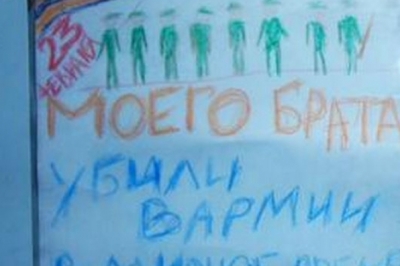 23
ФЕВРАЛЯ
МОЕГО БРАТА
УБИЛИ
В АРМИИ